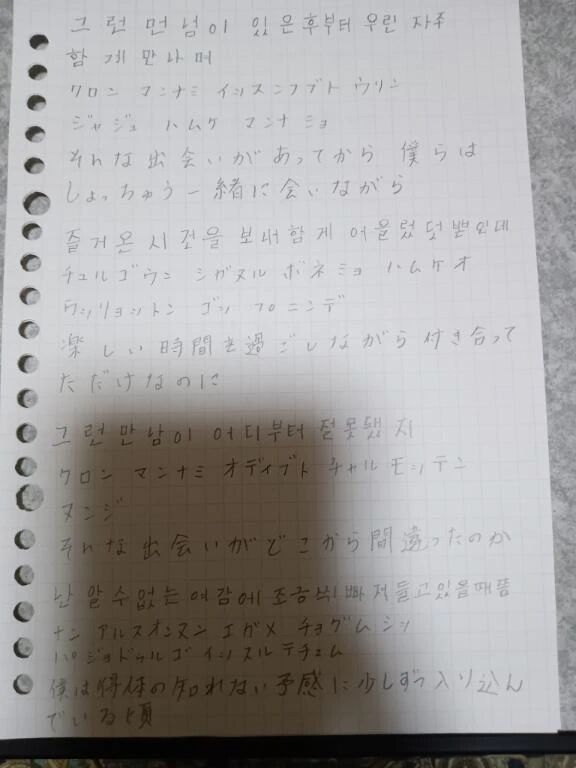 그런 먼 남이 있은후부터 우린 자주
함게 만나며
クロン マンナミ イッスンフブト ウリン
ジャジュ ハムケ マンナミョ
それな出会いがあってから 僕らは
しょっちゅう一緒に会いながら
즐거운 시간을 보내 함게 어울렸던 뿐인데
チュルゴウン シガヌル ボネミョ ハムケオ
ウッリョットン ゴッ プニンデ
楽しい時間を過ごしながら付き合って
ただけなのに
그런 만남이 어디부터 잘못됐지
クロン マンナミ オディブト チャルモッテン
ヌンジ
それな出会いがどこから間違ったのか
난 알 수 없는 예감에 조금씩 빠져들고 있을때쯤
ナン アルスオンヌン エガメ チョグムシッ
パジョドゥルゴ イッスルテチュム
僕は得体の知れない予感に少しずつ入り込ん
でいる頃